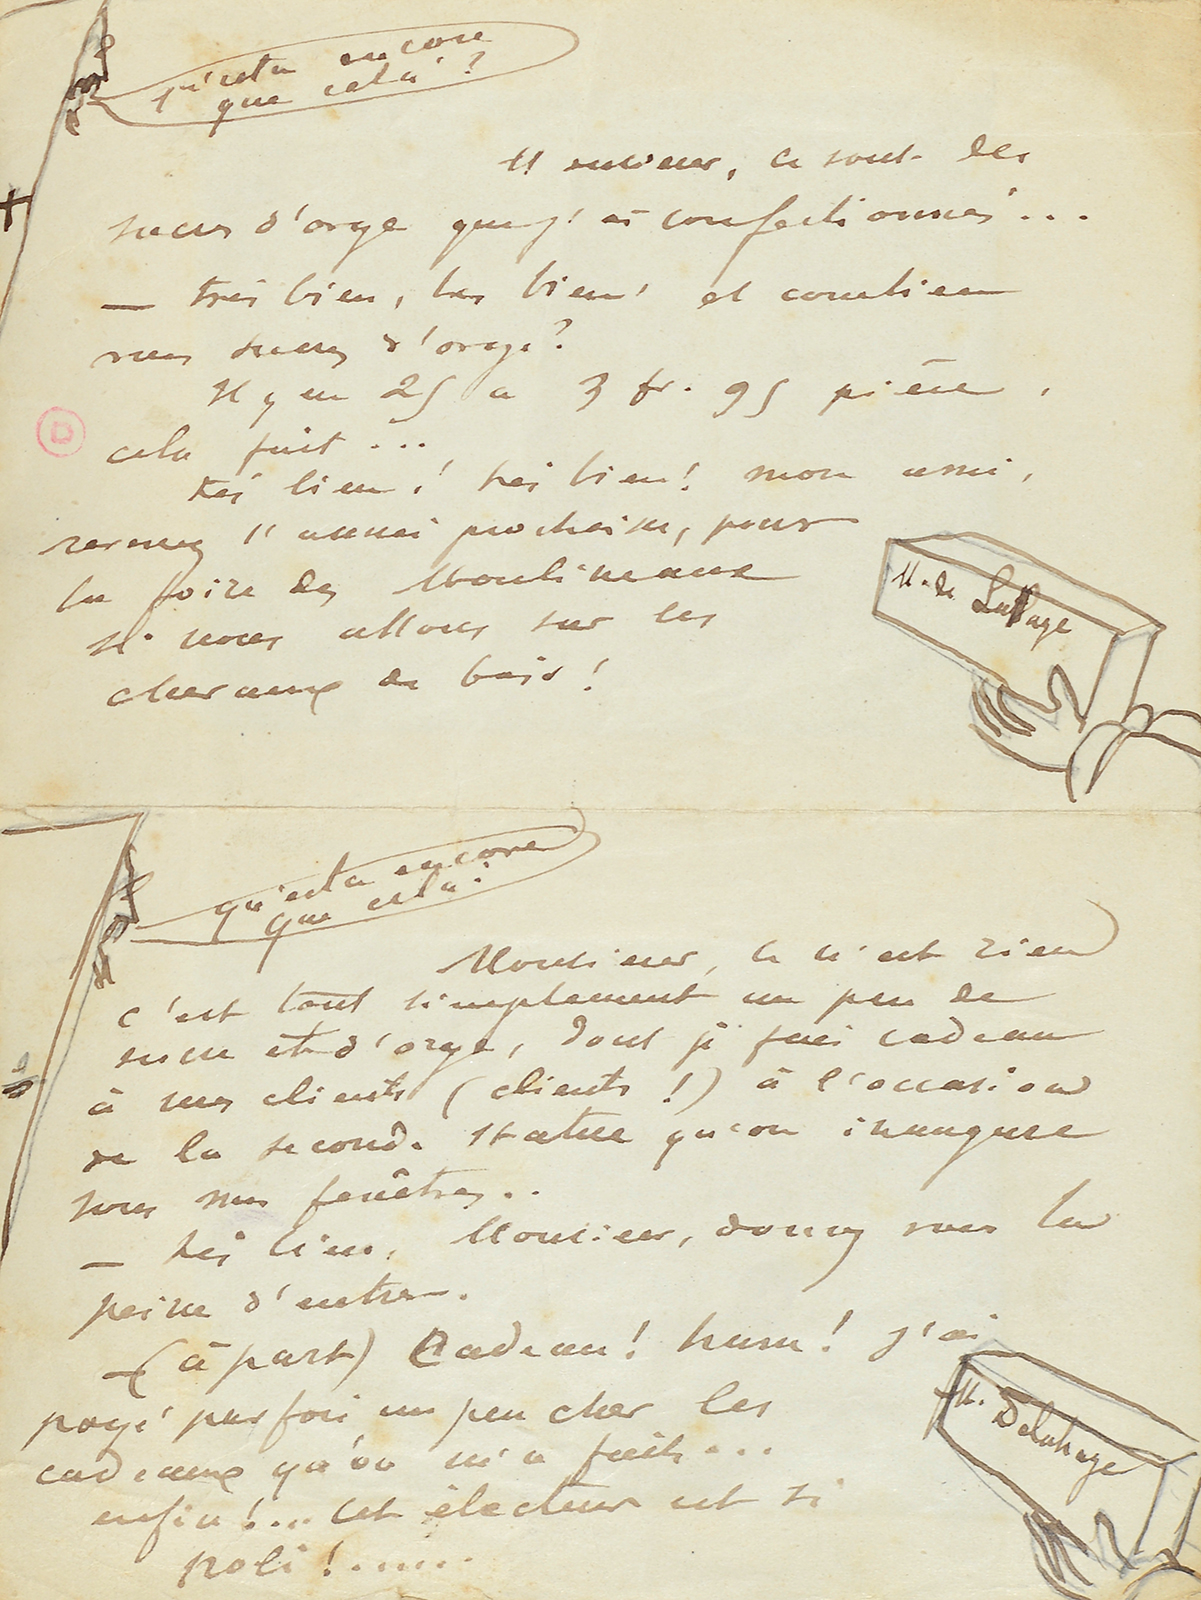 qu'est-ce encore
que cela ?
Monsieur, ce sont des
sucres d'orge que j'ai confectionnés...
— très bien, très bien ! et combien
vos sucres d'orge ?
Il y en 25 a 3 fr. 95 pièce,
cela fait ...
très bien ! très bien ! mon ami,
revenez l'année prochaine, pour
la foire des Moulineaux
si nous allons sur les
chevaux de bois !
M. de LaHaye
qu'est-ce encore
que cela :
Monsieur, ce n'est rien
c'est tout simplement un peu de
sucre et d'orge, dont je fais cadeau
à mes clients (clients !) à l'occasion
de la seconde statue qu'on inaugure
sous mes fenêtres..
— très bien, Monsieur, donnez vous la
peine d'entrer.
— (à part) Cadeau ! hum ! j'ai
payé parfois un peu cher les
cadeaux qu'on m'a faits...
enfin !... Cet électeur est si
poli ! .....
M. Delahaye